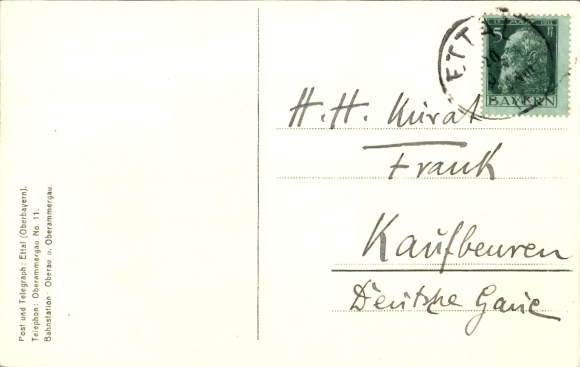 Post und Telegraph: Ettal (Oberbayern).
Telephon: Oberammergau No 11.
Bahnstation: Oberau u. Oberammergau.
ETTAL
5
BAYERN
H. H. Kurat
Frank
Kaufbeuren
Deutsche Gaue